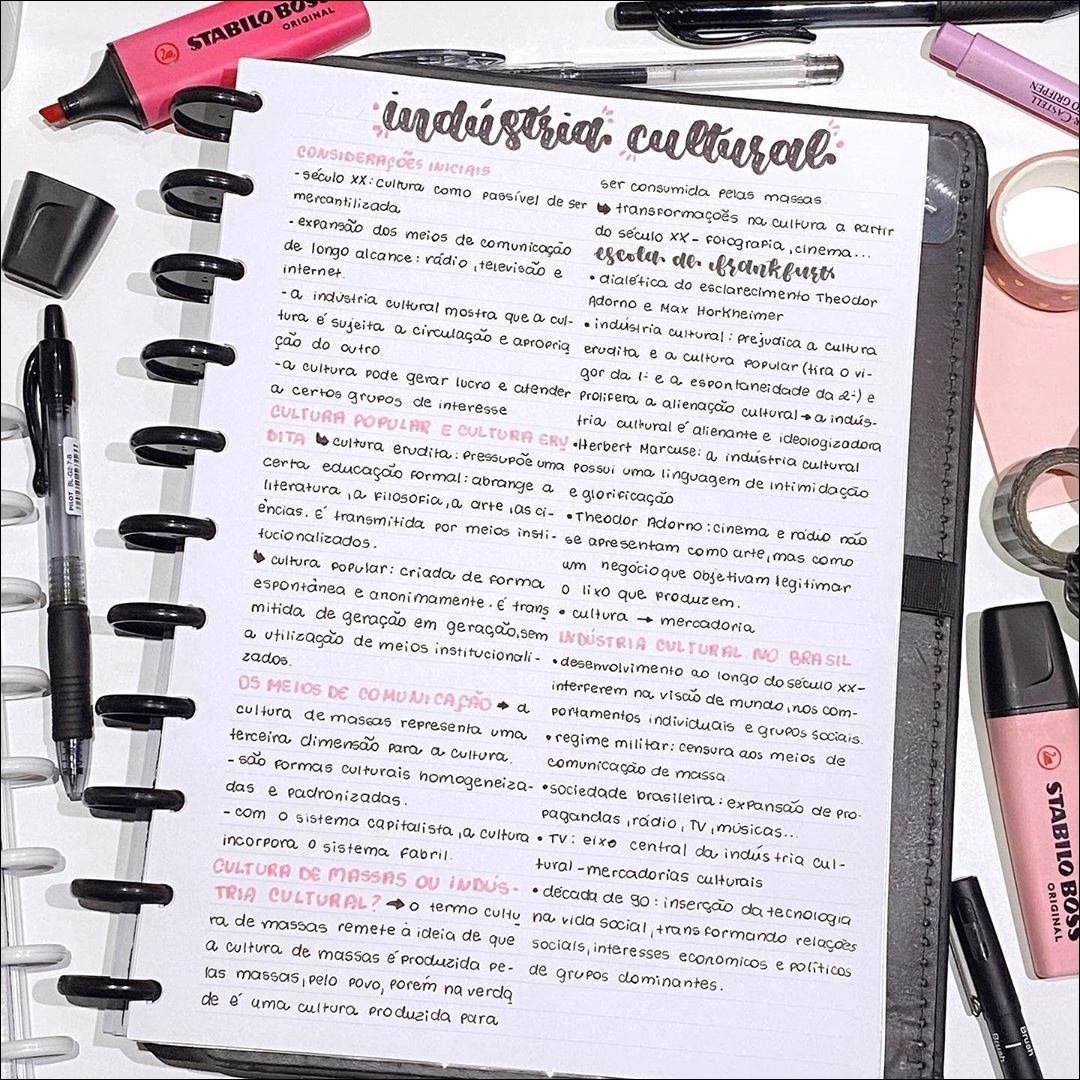 STABILO BOSS
ORIGINAL
CASTELL
GRIFPEN
indústria cultural
CONSIDERAÇÕES INICIAIS
- século XX: cultura como passível de ser
mercantilizada
- expansão dos meios de comunicação
de longo alcance: rádio, televisão e
internet.
- a indústria cultural mostra que a cul-
tura é sujeita a circulação e apropria
ção do outro
- a cultura pode gerar lucro e atender
a certos grupos de interesse
CULTURA POPULAR E CULTURA ERU
DITA ↳ cultura erudita: pressupõe uma
certa educação formal: abrange a
literatura, a filosofia, a arte, as ci-
ências. É transmitida por meios insti-
tucionalizados.
↳ cultura popular: criada de forma
espontânea e anonimamente. É trans
mitida de geração em geração, sem
a utilização de meios institucionali-
zados.
OS MEIOS DE COMUNICAÇÃO → a
cultura de massas representa uma
terceira dimensão para a cultura.
- são formas culturais homogeneiza-
das e padronizadas.
- com o sistema capitalista, a cultura
incorpora o sistema fabril.
CULTURA DE MASSAS OU INDÚS-
TRIA CULTURAL? → o termo cultu
ra de massas remete à ideia de que
a cultura de massas é produzida pe-
las massas, pelo povo, porém na verda
de é uma cultura produzida para
ser consumida pelas massas.
↳ transformações na cultura a partir
do século XX - fotografia, cinema...
escola de frankfurt
• dialética do esclarecimento Theodor
Adorno e Max Horkheimer
• indústria cultural: prejudica a cultura
erudita e a cultura popular (tira o vi-
gor da 1ª e a espontaneidade da 2ª) e
prolifera a alienação cultural → a indús-
tria cultural é alienante e ideologizadora
• Herbert Marcuse: a indústria cultural
possui uma linguagem de intimidação
e glorificação
• Theodor Adorno: cinema e rádio não
se apresentam como arte, mas como
um negócio que objetivam legitimar
o lixo que produzem.
• cultura → mercadoria
INDÚSTRIA CULTURAL NO BRASIL
• desenvolvimento ao longo do século XX-
interferem na visão de mundo, nos com-
portamentos individuais e grupos sociais.
• regime militar: censura aos meios de
comunicação de massa
• sociedade brasileira: expansão de pro-
pagandas, rádio, TV, músicas...
• TV: eixo central da indústria cul-
tural - mercadorias culturais
• década de 90: inserção da tecnologia
na vida social, transformando relações
sociais, interesses economicos e políticos
de grupos dominantes.
PILOT BL-G2-7-B
STABILO BOSS
ORIGINAL
Brush
Brush